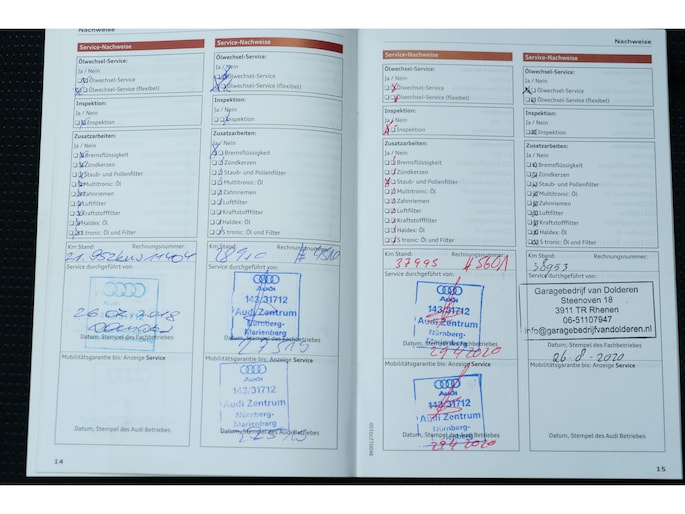 Nachweise
Service-Nachweise
Ölwechsel-Service:
Ja / Nein
Ölwechsel-Service
Ölwechsel-Service (flexibel)
Inspektion:
Ja / Nein
Inspektion
Zusatzarbeiten:
Ja / Nein
Bremsflüssigkeit
Zündkerzen
Staub- und Pollenfilter
Multitronic: Öl
Zahnriemen
Luftfilter
Kraftstofffilter
Haldex: Öl
S tronic: Öl und Filter
Km Stand: Rechnungsnummer:
Service durchgeführt von:
Audi
Datum, Stempel des Fachbetriebes
Mobilitätsgarantie bis: Anzeige Service
Datum, Stempel des Audi Betriebes
14
Service-Nachweise
Ölwechsel-Service:
Ja / Nein
Ölwechsel-Service
Ölwechsel-Service (flexibel)
Inspektion:
Ja / Nein
Inspektion
Zusatzarbeiten:
Ja / Nein
Bremsflüssigkeit
Zündkerzen
Staub- und Pollenfilter
Multitronic: Öl
Zahnriemen
Luftfilter
Kraftstofffilter
Haldex: Öl
S tronic: Öl und Filter
Km Stand: Rechnungsnummer:
Service durchgeführt von:
Audi
143/31712
Audi Zentrum
Nürnberg-
Marienberg
Datum, Stempel des Fachbetriebes
Mobilitätsgarantie bis: Anzeige Service
Audi
143/31712
Audi Zentrum
Nürnberg-
Marienberg
Datum, Stempel des Audi Betriebes
Nachweise
Service-Nachweise
Ölwechsel-Service:
Ja / Nein
Ölwechsel-Service
Ölwechsel-Service (flexibel)
Inspektion:
Ja / Nein
Inspektion
Zusatzarbeiten:
Ja / Nein
Bremsflüssigkeit
Zündkerzen
Staub- und Pollenfilter
Multitronic: Öl
Zahnriemen
Luftfilter
Kraftstofffilter
Haldex: Öl
S tronic: Öl und Filter
Km Stand: Rechnungsnummer:
37995
Service durchgeführt von:
Audi
143/31712
Audi Zentrum
Nürnberg-
Marienberg
Datum, Stempel des Fachbetriebes
29.4.2020
Mobilitätsgarantie bis: Anzeige Service
Audi
143/31712
Audi Zentrum
Nürnberg-
Datum, Stempel des Audi Betriebes
29.4.2020
Service-Nachweise
Ölwechsel-Service:
Ja / Nein
Ölwechsel-Service
Ölwechsel-Service (flexibel)
Inspektion:
Ja / Nein
Inspektion
Zusatzarbeiten:
Ja / Nein
Bremsflüssigkeit
Zündkerzen
Staub- und Pollenfilter
Multitronic: Öl
Zahnriemen
Luftfilter
Kraftstofffilter
Haldex: Öl
S tronic: Öl und Filter
Km Stand: Rechnungsnummer:
38953
Service durchgeführt von:
Garagebedrijf van Dolderen
Steenoven 18
3911 TR Rhenen
06-51107947
info@garagebedrijfvandolderen.nl
Datum, Stempel des Fachbetriebes
26-8-2020
Mobilitätsgarantie bis: Anzeige Service
Datum, Stempel des Audi Betriebes
15